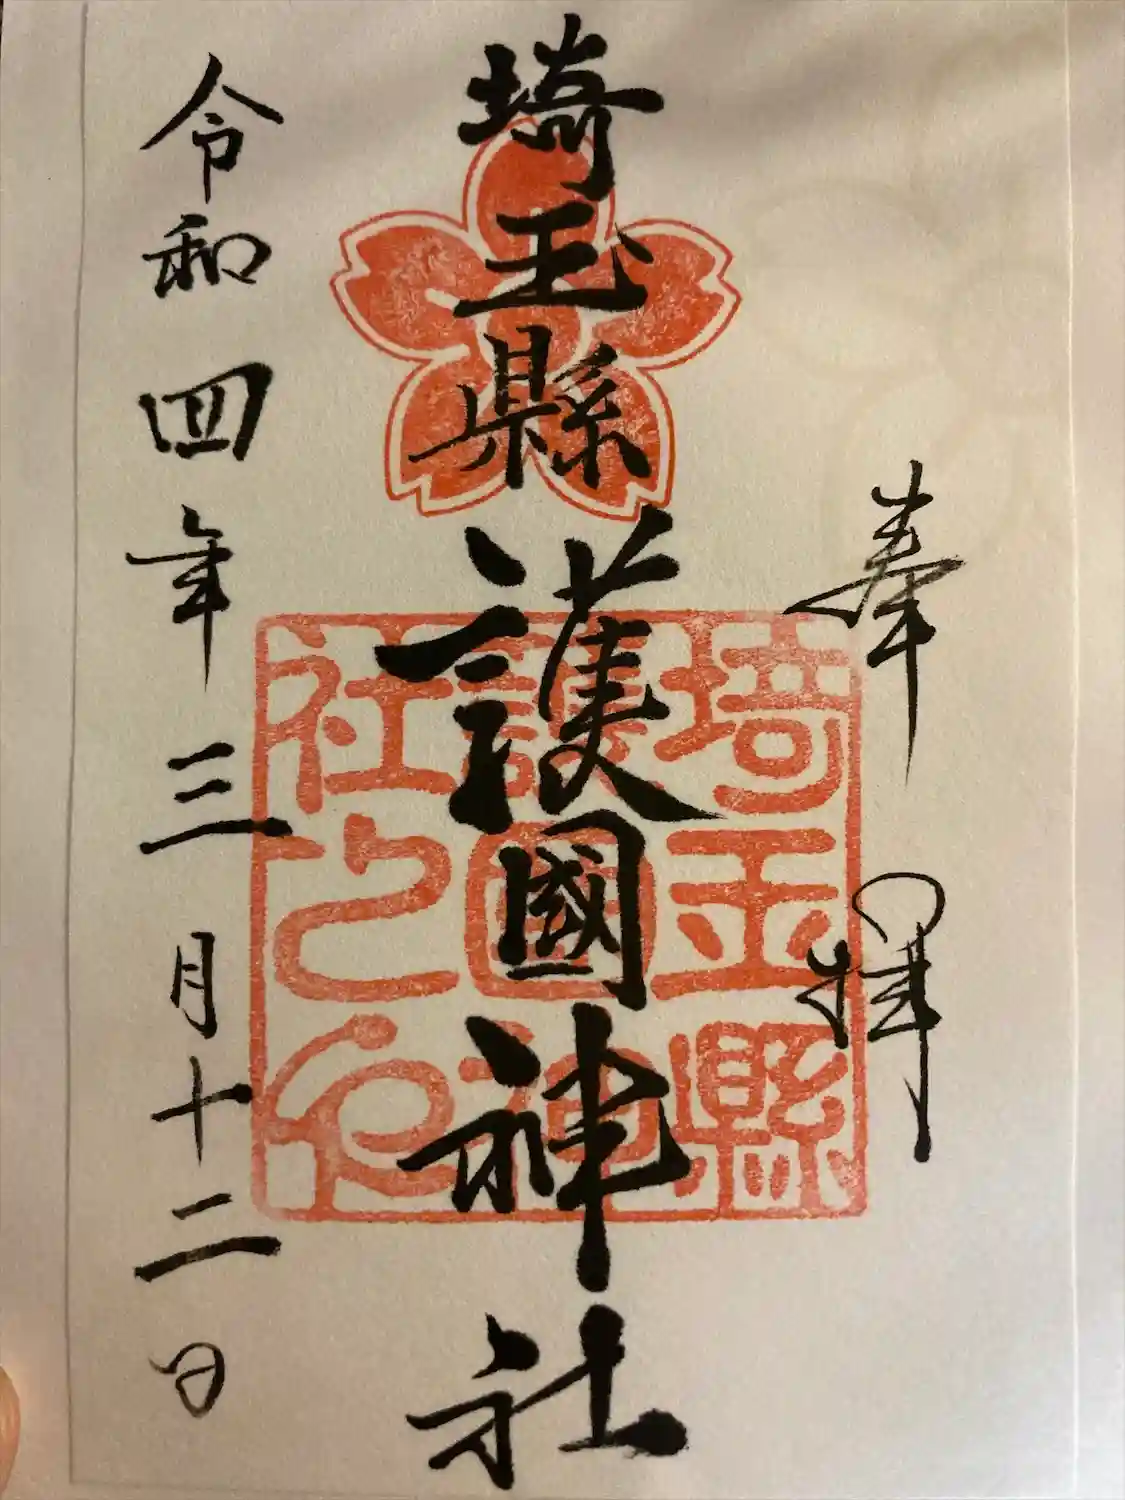 奉拝
埼玉縣護國神社
埼玉縣
護國神
社之印
令和四年三月十二日